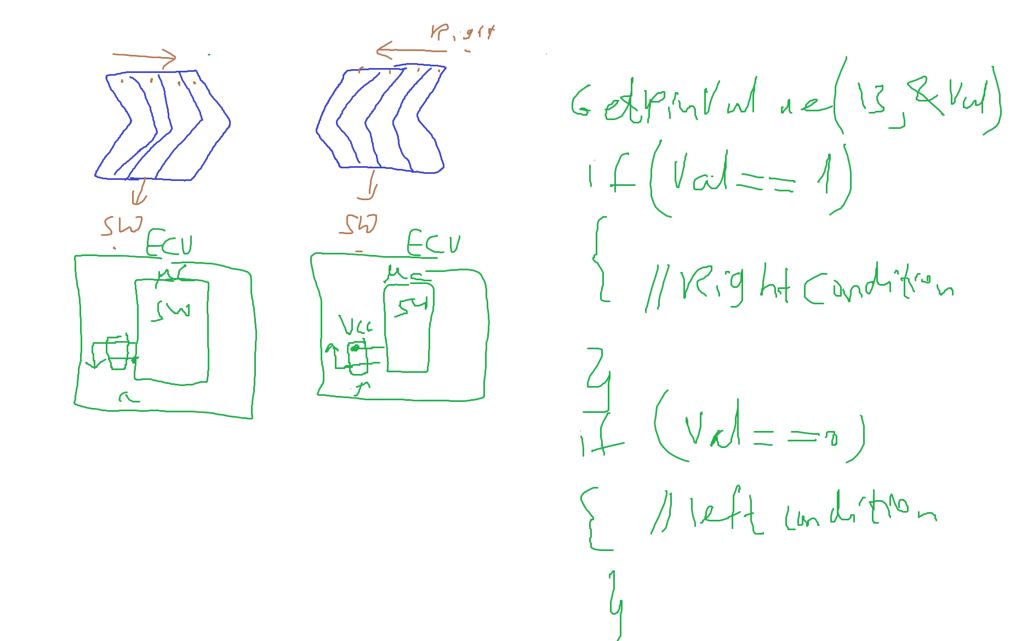 Right
SW
SW
ECU
ECU
μC
μC
SW
SW
Vcc
GetPinValue(13,&Val)
if(Val==1)
{
//Right Condition
}
if (Val==0)
{ //left condition
}